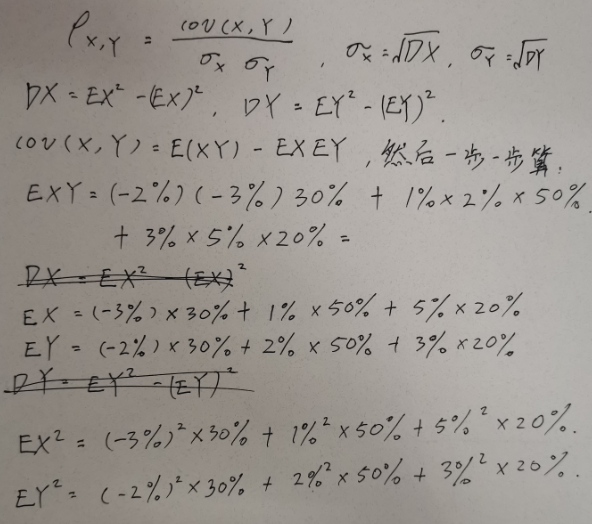 ρX,Y = cov(X,Y) / σX σY , σX = √DX , σY = √DY
DX = EX² - (EX)² , DY = EY² - (EY)² .
cov(X,Y) = E(XY) - EXEY , 然后一步一步算:
EXY = (-2%)(-3%)30% + 1%×2%×50%
+ 3%×5%×20% =
DX = EX² - (EX)²
EX = (-3%)×30% + 1%×50% + 5%×20%
EY = (-2%)×30% + 2%×50% + 3%×20%
DY = EY² - (EY)²
EX² = (-3%)²×30% + 1%²×50% + 5%²×20%.
EY² = (-2%)²×30% + 2%²×50% + 3%²×20%.